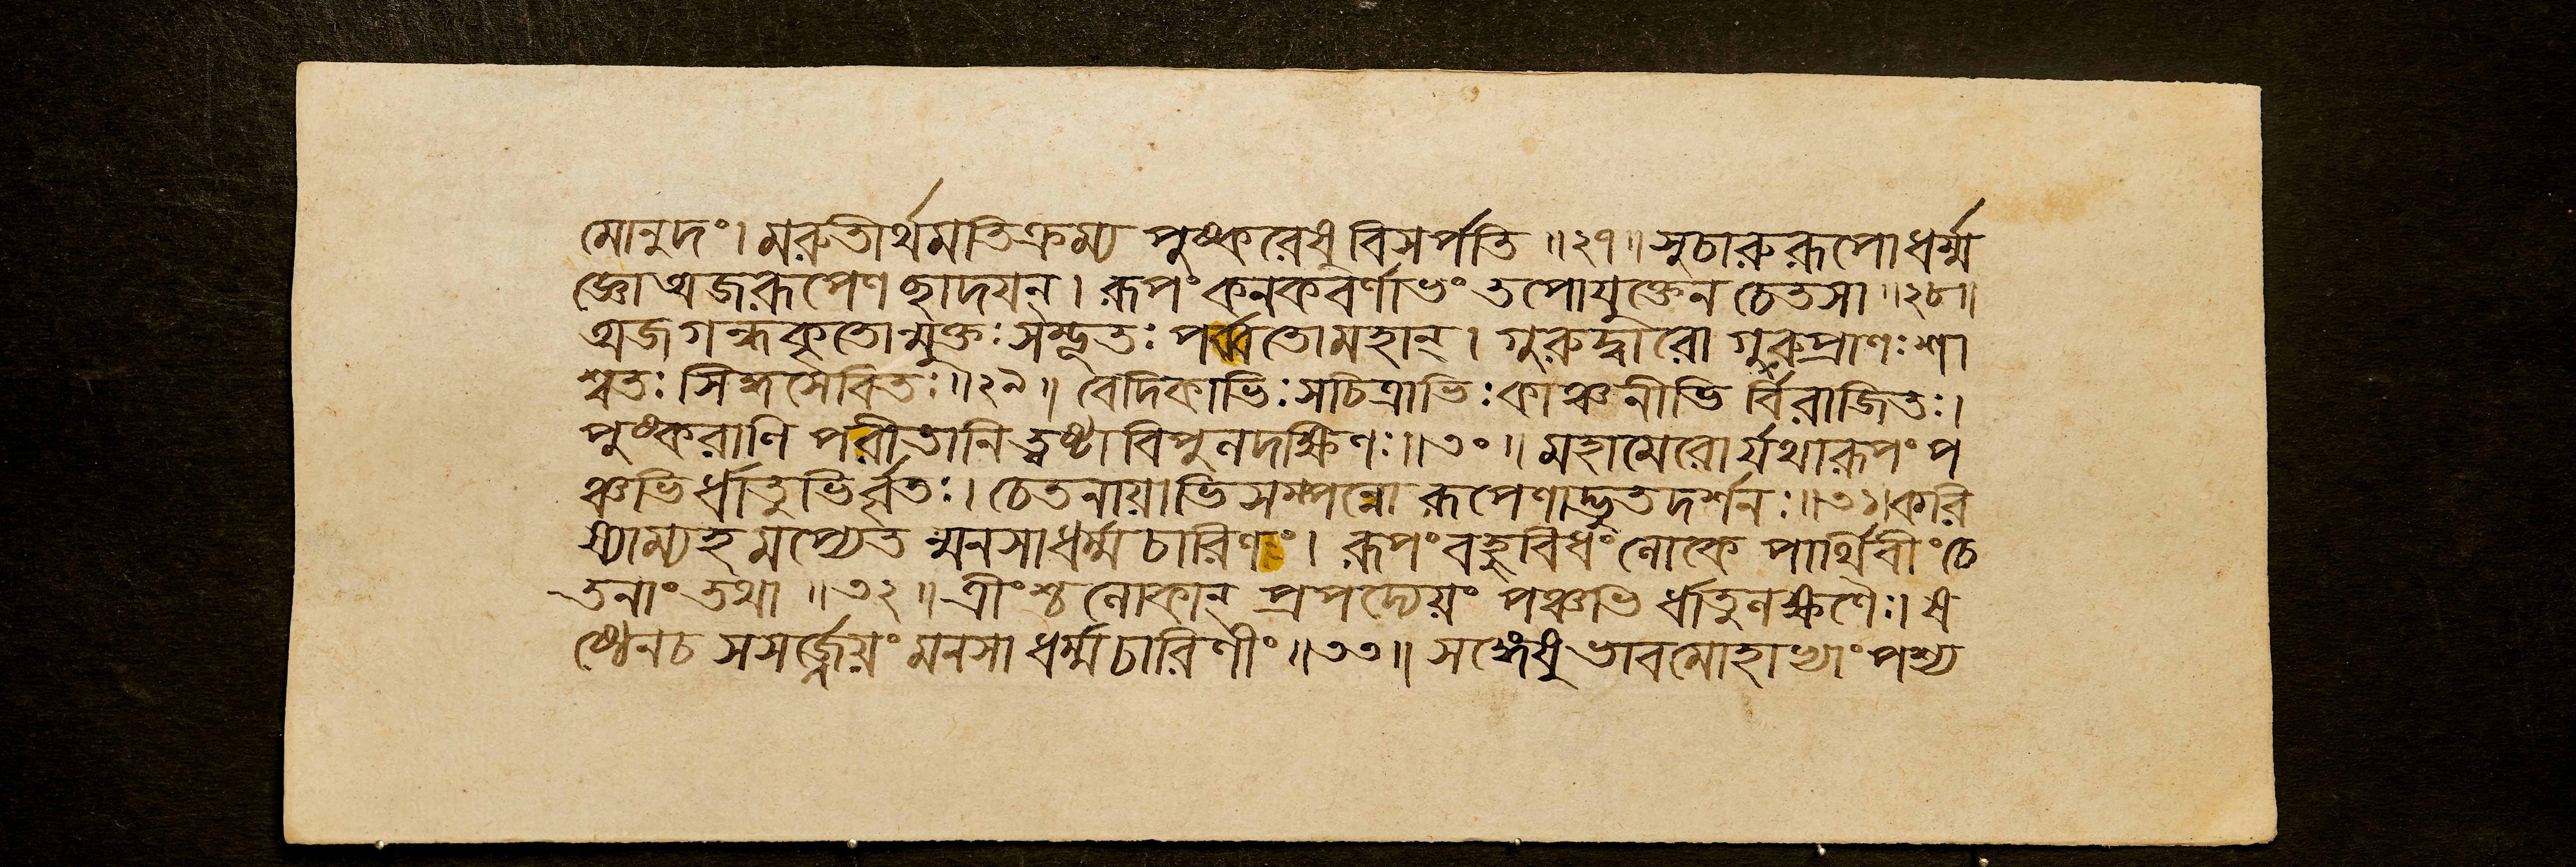 মোনুদং। মরুতীর্থমতিক্রম্য পুষ্করেষু বিসর্পতি ॥২৭॥ সুচারুরূপো ধর্ম্ম
জ্ঞো অজরূপেণ ছাদযন্। রূপং কনকবর্ণাভং তপোযুক্তেন চেতসা ॥২৮॥
অজগন্ধকৃতোন্মুক্তঃ সম্ভূতঃ পর্ব্বতোমহান্। গুরুদ্বারো গুরুপ্রাণঃ শা
শ্বতঃ সিদ্ধসেবিতঃ ॥২৯॥ বেদিকাভিঃ সচিত্রাভিঃ কাঞ্চনীভি র্বিরাজিতঃ।
পুষ্করাণি পরীতানি ত্বষ্টা বিপুলদক্ষিণঃ ॥৩০॥ মহামেরোর্যথারূপং প
ঞ্চভির্ধাতুভির্বৃতঃ। চেতনায়াভিসম্পন্নো রূপেণাদ্ভুতদর্শনঃ ॥৩১। করি
ষ্যাম্যহমপ্যেত ন্মনসাধর্ম্মচারিণং। রূপং বহুবিধং লোকে পার্থিবীং চে
তনাং তথা ॥৩২॥ ত্রীংশ্চ লোকান্ প্রপদ্যেয়ং পঞ্চভি র্ধাতুলক্ষিণৈঃ। ষ
ষ্ঠেনচ সসর্জ্জেয়ং মনসা ধর্ম্মচারিণীং ॥৩৩॥ সঙ্গেষু ভাবমোহাখ্যং পশ্য